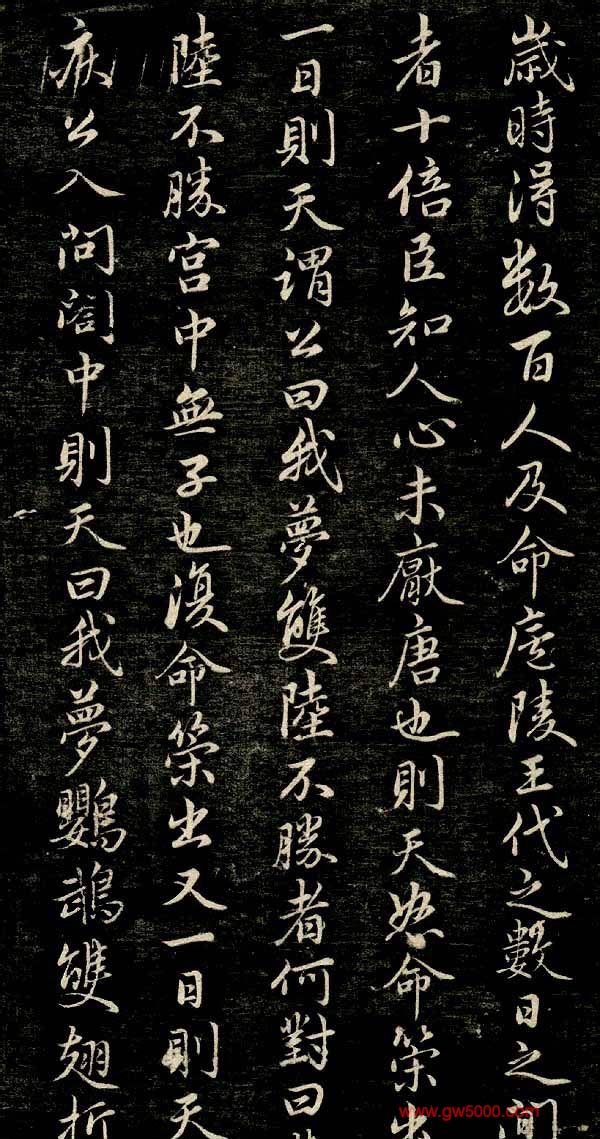 歲時得数百人及命廬陵王代之數日之間
者十倍臣知人心未厭唐也則天怒命策出
一日則天謂公曰我夢雙陸不勝者何對曰
陸不勝宫中無子也復命策出又一日則天
疾公入問閤中則天曰我夢鸚鵡雙翅折
www.gw5000.com